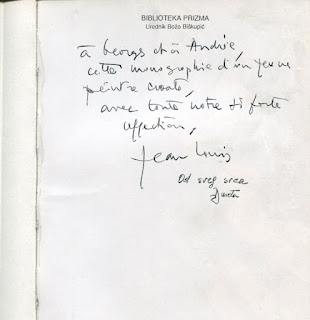 BIBLIOTEKA PRIZMA
Urednik Božo Biškupić
à Georges et à Andrée,
cette monographie d'un jeune
peintre croate,
avec toute notre si forte
affection,
Jean Louis
Od sveg srca